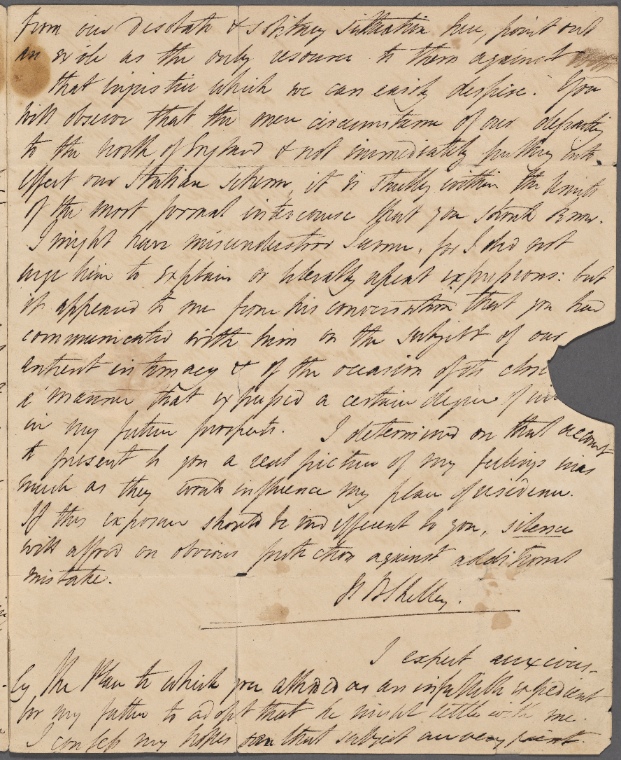 from our desolate & solitary situation here, point out
an exile as the only resource to them against
that injustice which we can easily despise. You
will observe that the mere circumstance of our departing
to the north of England & not immediately putting into
effect our Italian scheme, it is strictly within the limits
of the most formal intercourse that you should know.
I might have misunderstood Turner, for I did not
urge him to explain or literally repeat expressions: but
it appeared to me from his conversation that you had
communicated with him on the subject of our
antient intimacy & of the occasion of its clos
a manner that expressed a certain degree of in
in my future prospects. I determined on that account
to present to you a real picture of my feelings in as
much as they would influence my plan of residence.
If this exposure should be indifferent to you, silence
will afford an obvious protection against additional
mistake.
P B Shelley.
I expect anxious-
ly the Plan to which you alluded as an infallible expedient
for my father to adopt that he might settle with me
I confess my hopes on that subject are very faint